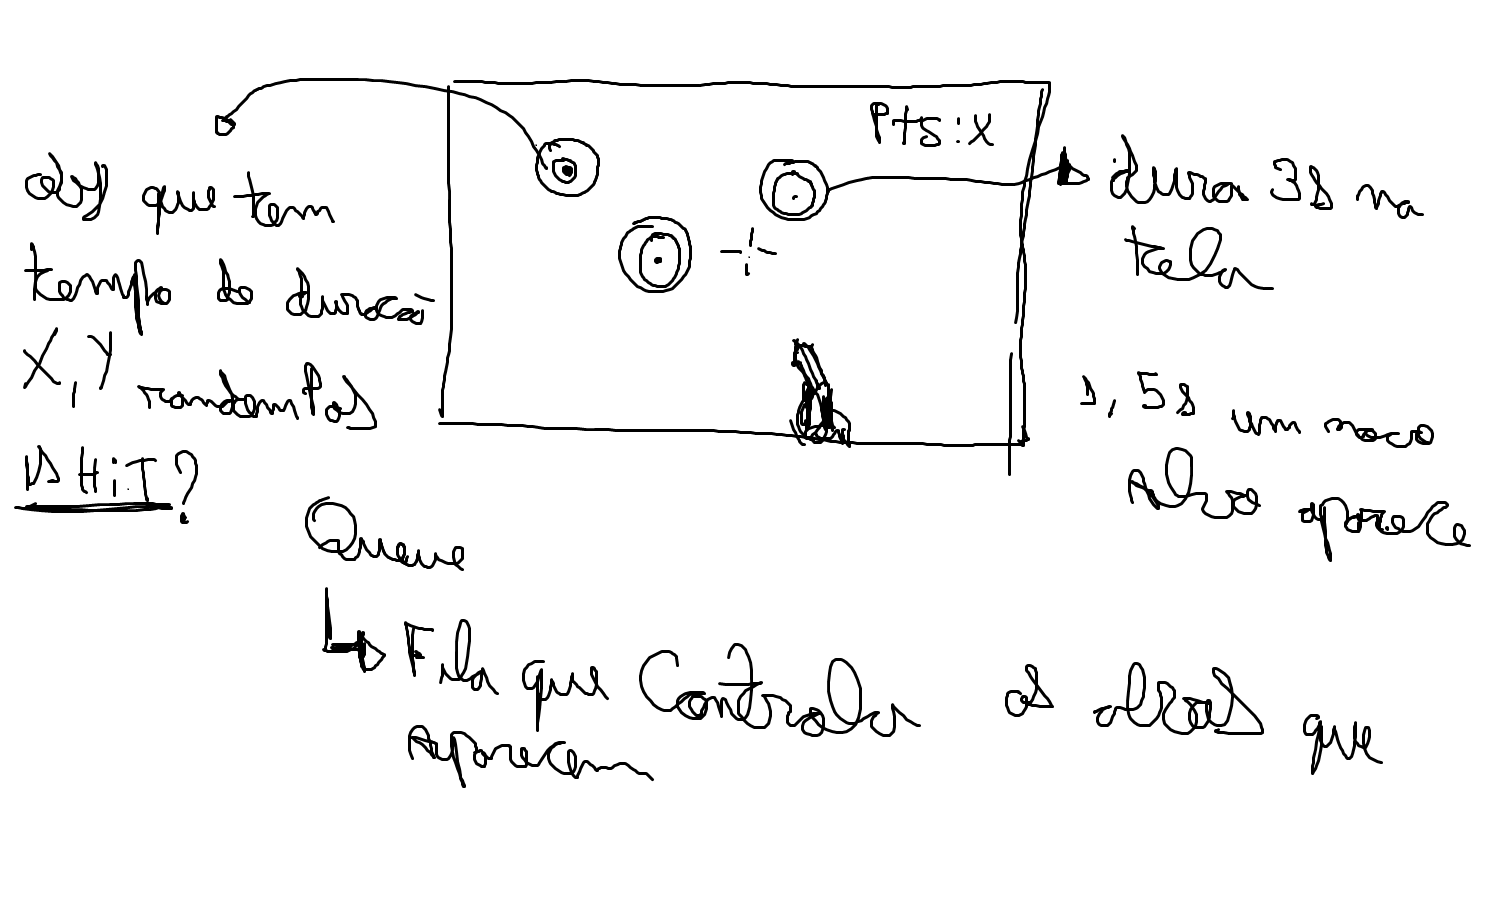 Pts:X
obj que tem
tempo de duração
X, Y random Pos
IS HiT?
dura 3s na
tela
1,5s um novo
Alvo aparece
Queue
Fila que Controla os alvos que
Aparecem